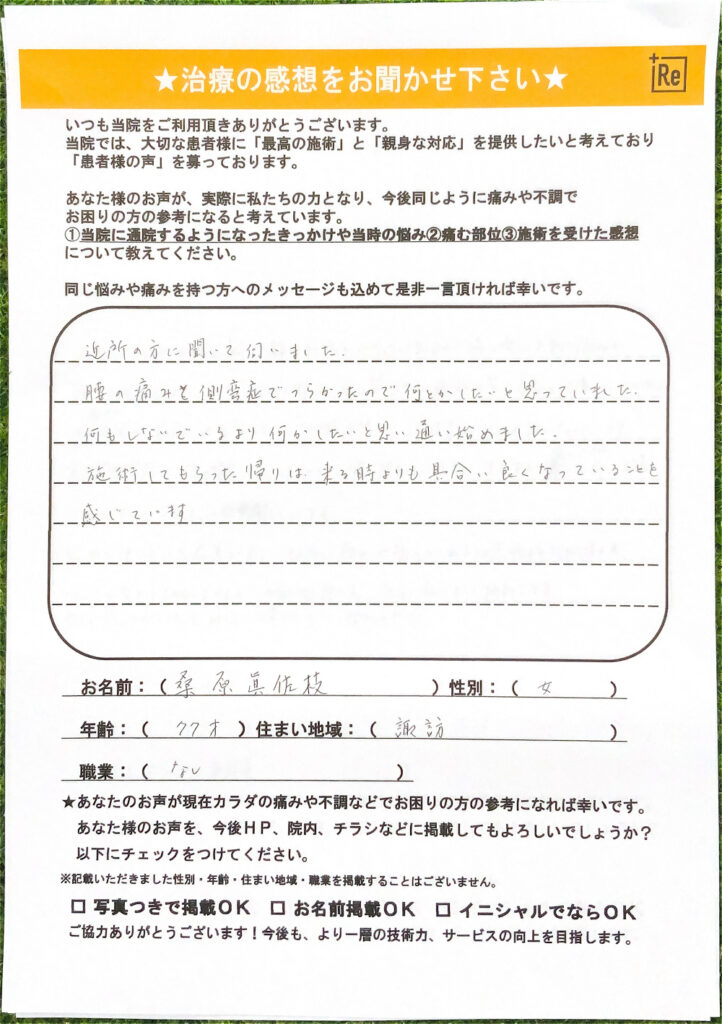 ★治療の感想をお聞かせ下さい★
+Re
いつも当院をご利用頂きありがとうございます。
当院では、大切な患者様に「最高の施術」と「親身な対応」を提供したいと考えており
「患者様の声」を募っております。
あなた様のお声が、実際に私たちの力となり、今後同じように痛みや不調で
お困りの方の参考になると考えています。
①当院に通院するようになったきっかけや当時の悩み②痛む部位③施術を受けた感想
について教えてください。
同じ悩みや痛みを持つ方へのメッセージも込めて是非一言頂ければ幸いです。
近所の方に聞いて伺いました.
腰の痛みを側弯症でつらかったので何とかしたいと思っていました.
何もしないでいるより何かしたいと思い通い始めました.
施術してもらった帰りは、来る時よりも具合い良くなっていることを
感じています
お名前:(桑原眞佐枝)性別:(女)
年齢:(77才)住まい地域:(諏訪)
職業:(なし)
★あなたのお声が現在カラダの痛みや不調などでお困りの方の参考になれば幸いです。
あなた様のお声を、今後HP、院内、チラシなどに掲載してもよろしいでしょうか?
以下にチェックをつけてください。
※記載いただきました性別・年齢・住まい地域・職業を掲載することはございません。
□ 写真つきで掲載OK □ お名前掲載OK □ イニシャルでならOK
ご協力ありがとうございます!今後も、より一層の技術力、サービスの向上を目指します。